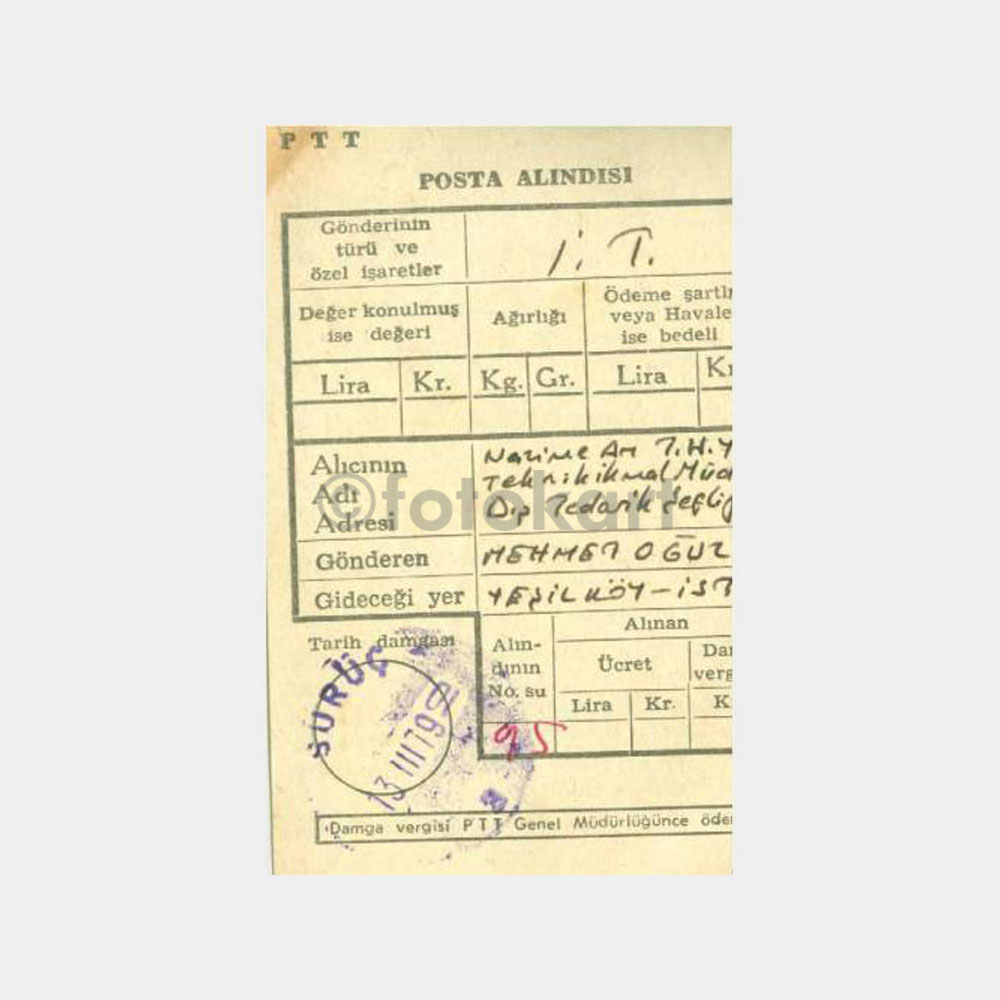 PTT
POSTA ALINDISI
Gönderinin
türü ve
özel işaretler
İ. T.
Değer konulmuş
ise değeri
Ağırlığı
Ödeme şartlı
veya Havale
ise bedeli
Lira Kr. Kg. Gr. Lira Kr
Alıcının
Adı
Adresi
Nazime Arı T.H.Y
Teknik ikmal Müd
Dış Tedarik Şefliğ
Gönderen MEHMET OĞUZ
Gideceği yer YEŞİLKÖY-İST
Tarih damgası
Alın-
dının
No. su
Alınan
Ücret
Da
verg
Lira Kr. K
95
SURUÇ
13 III 79
Damga vergisi PTT Genel Müdürlüğünce öde
©fotokart